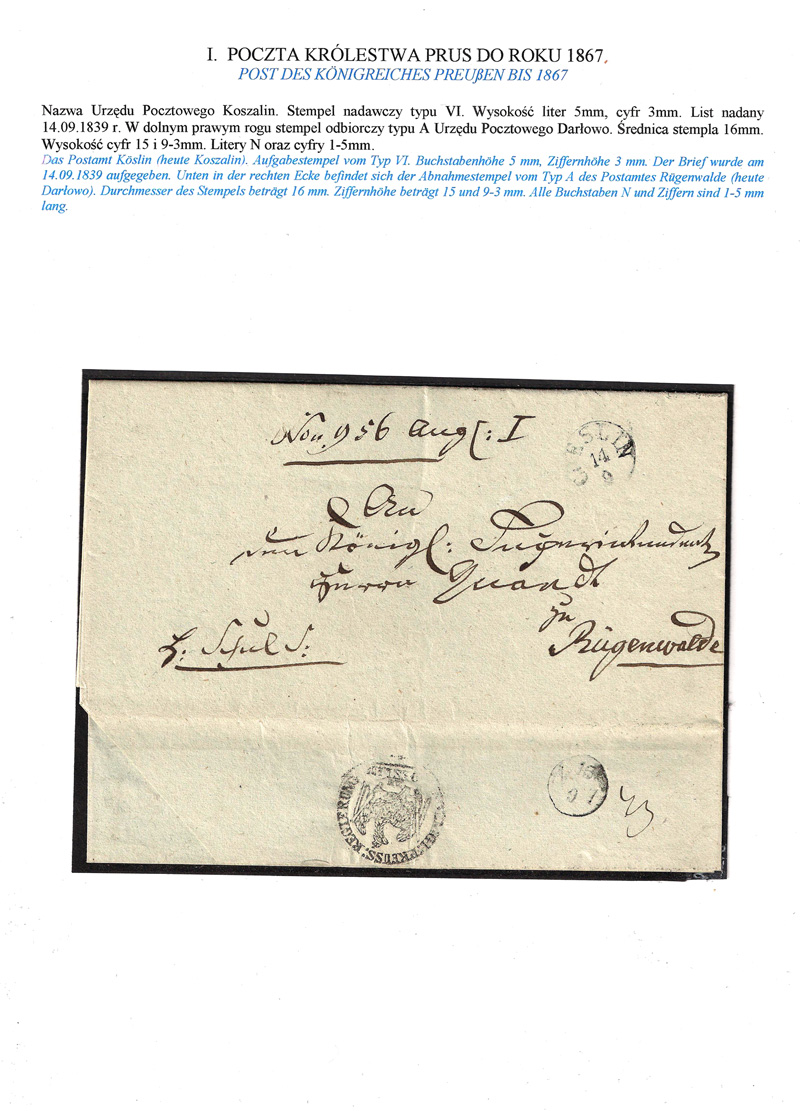 I. POCZTA KRÓLESTWA PRUS DO ROKU 1867.
POST DES KÖNIGREICHES PREUßEN BIS 1867
Nazwa Urzędu Pocztowego Koszalin. Stempel nadawczy typu VI. Wysokość liter 5mm, cyfr 3mm. List nadany
14.09.1839 r. W dolnym prawym rogu stempel odbiorczy typu A Urzędu Pocztowego Darłowo. Średnica stempla 16mm.
Wysokość cyfr 15 i 9-3mm. Litery N oraz cyfry 1-5mm.
Das Postamt Köslin (heute Koszalin). Aufgabestempel vom Typ VI. Buchstabenhöhe 5 mm, Ziffernhöhe 3 mm. Der Brief wurde am
14.09.1839 aufgegeben. Unten in der rechten Ecke befindet sich der Abnahmestempel vom Typ A des Postamtes Rügenwalde (heute
Darłowo). Durchmesser des Stempels beträgt 16 mm. Ziffernhöhe beträgt 15 und 9-3 mm. Alle Buchstaben N und Ziffern sind 1-5 mm
lang.
Non. 956 Aug I
COESLIN
14
9
An
den Königl: Superintendent
Herrn Quandt
zu
Rügenwalde
H: Schul S:
PREUSS: REGIERUNG
N. 15
9 1